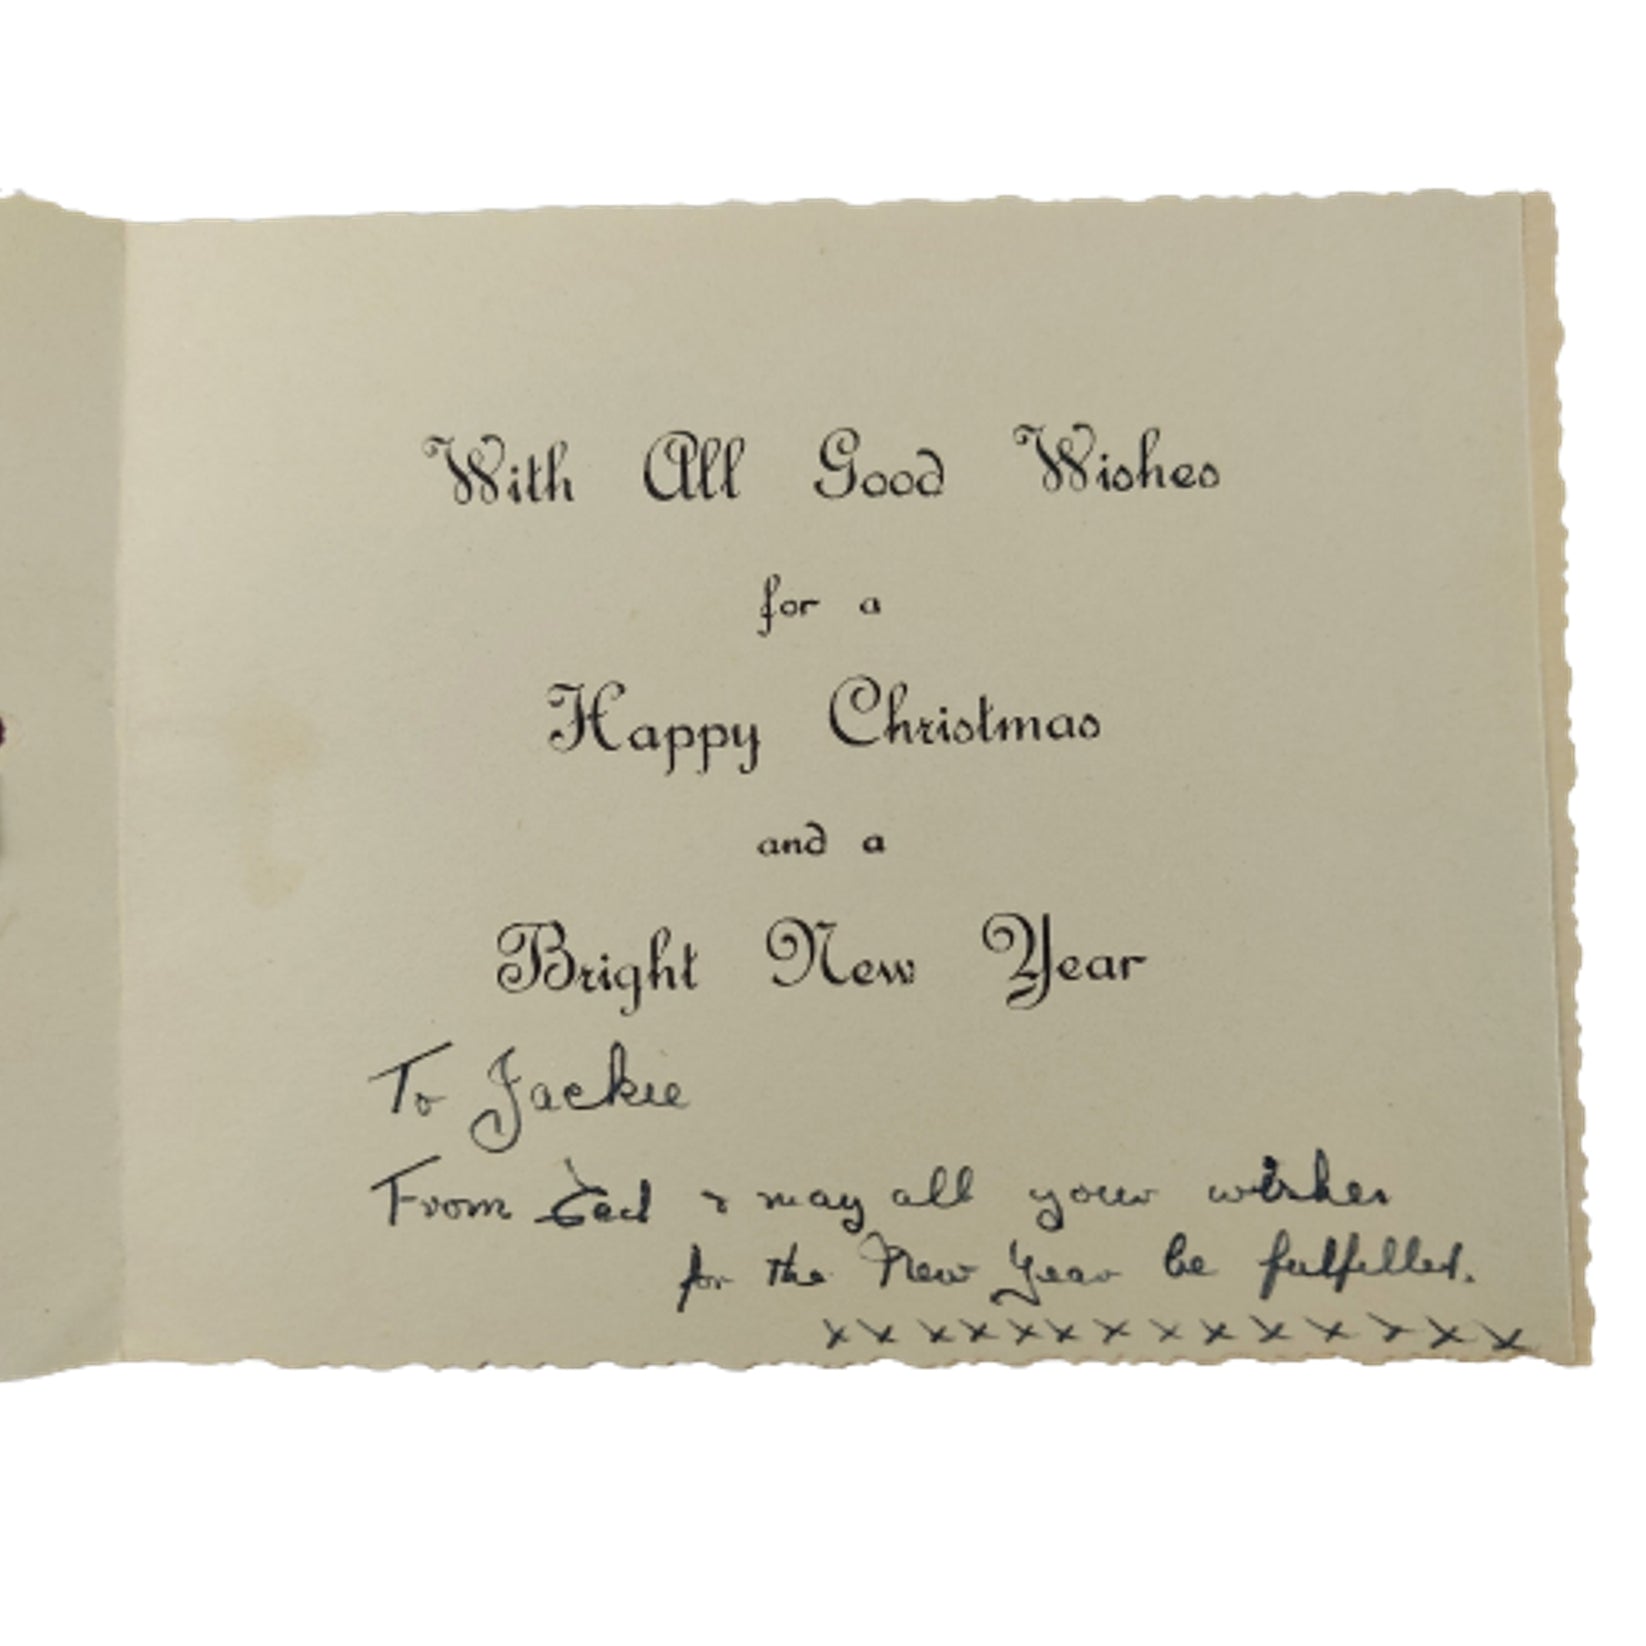 With All Good Wishes
for a
Happy Christmas
and a
Bright New Year
To Jackie
From & may all your wishes
for the New Year be fulfilled.
x x x x x x x x x x x x x x